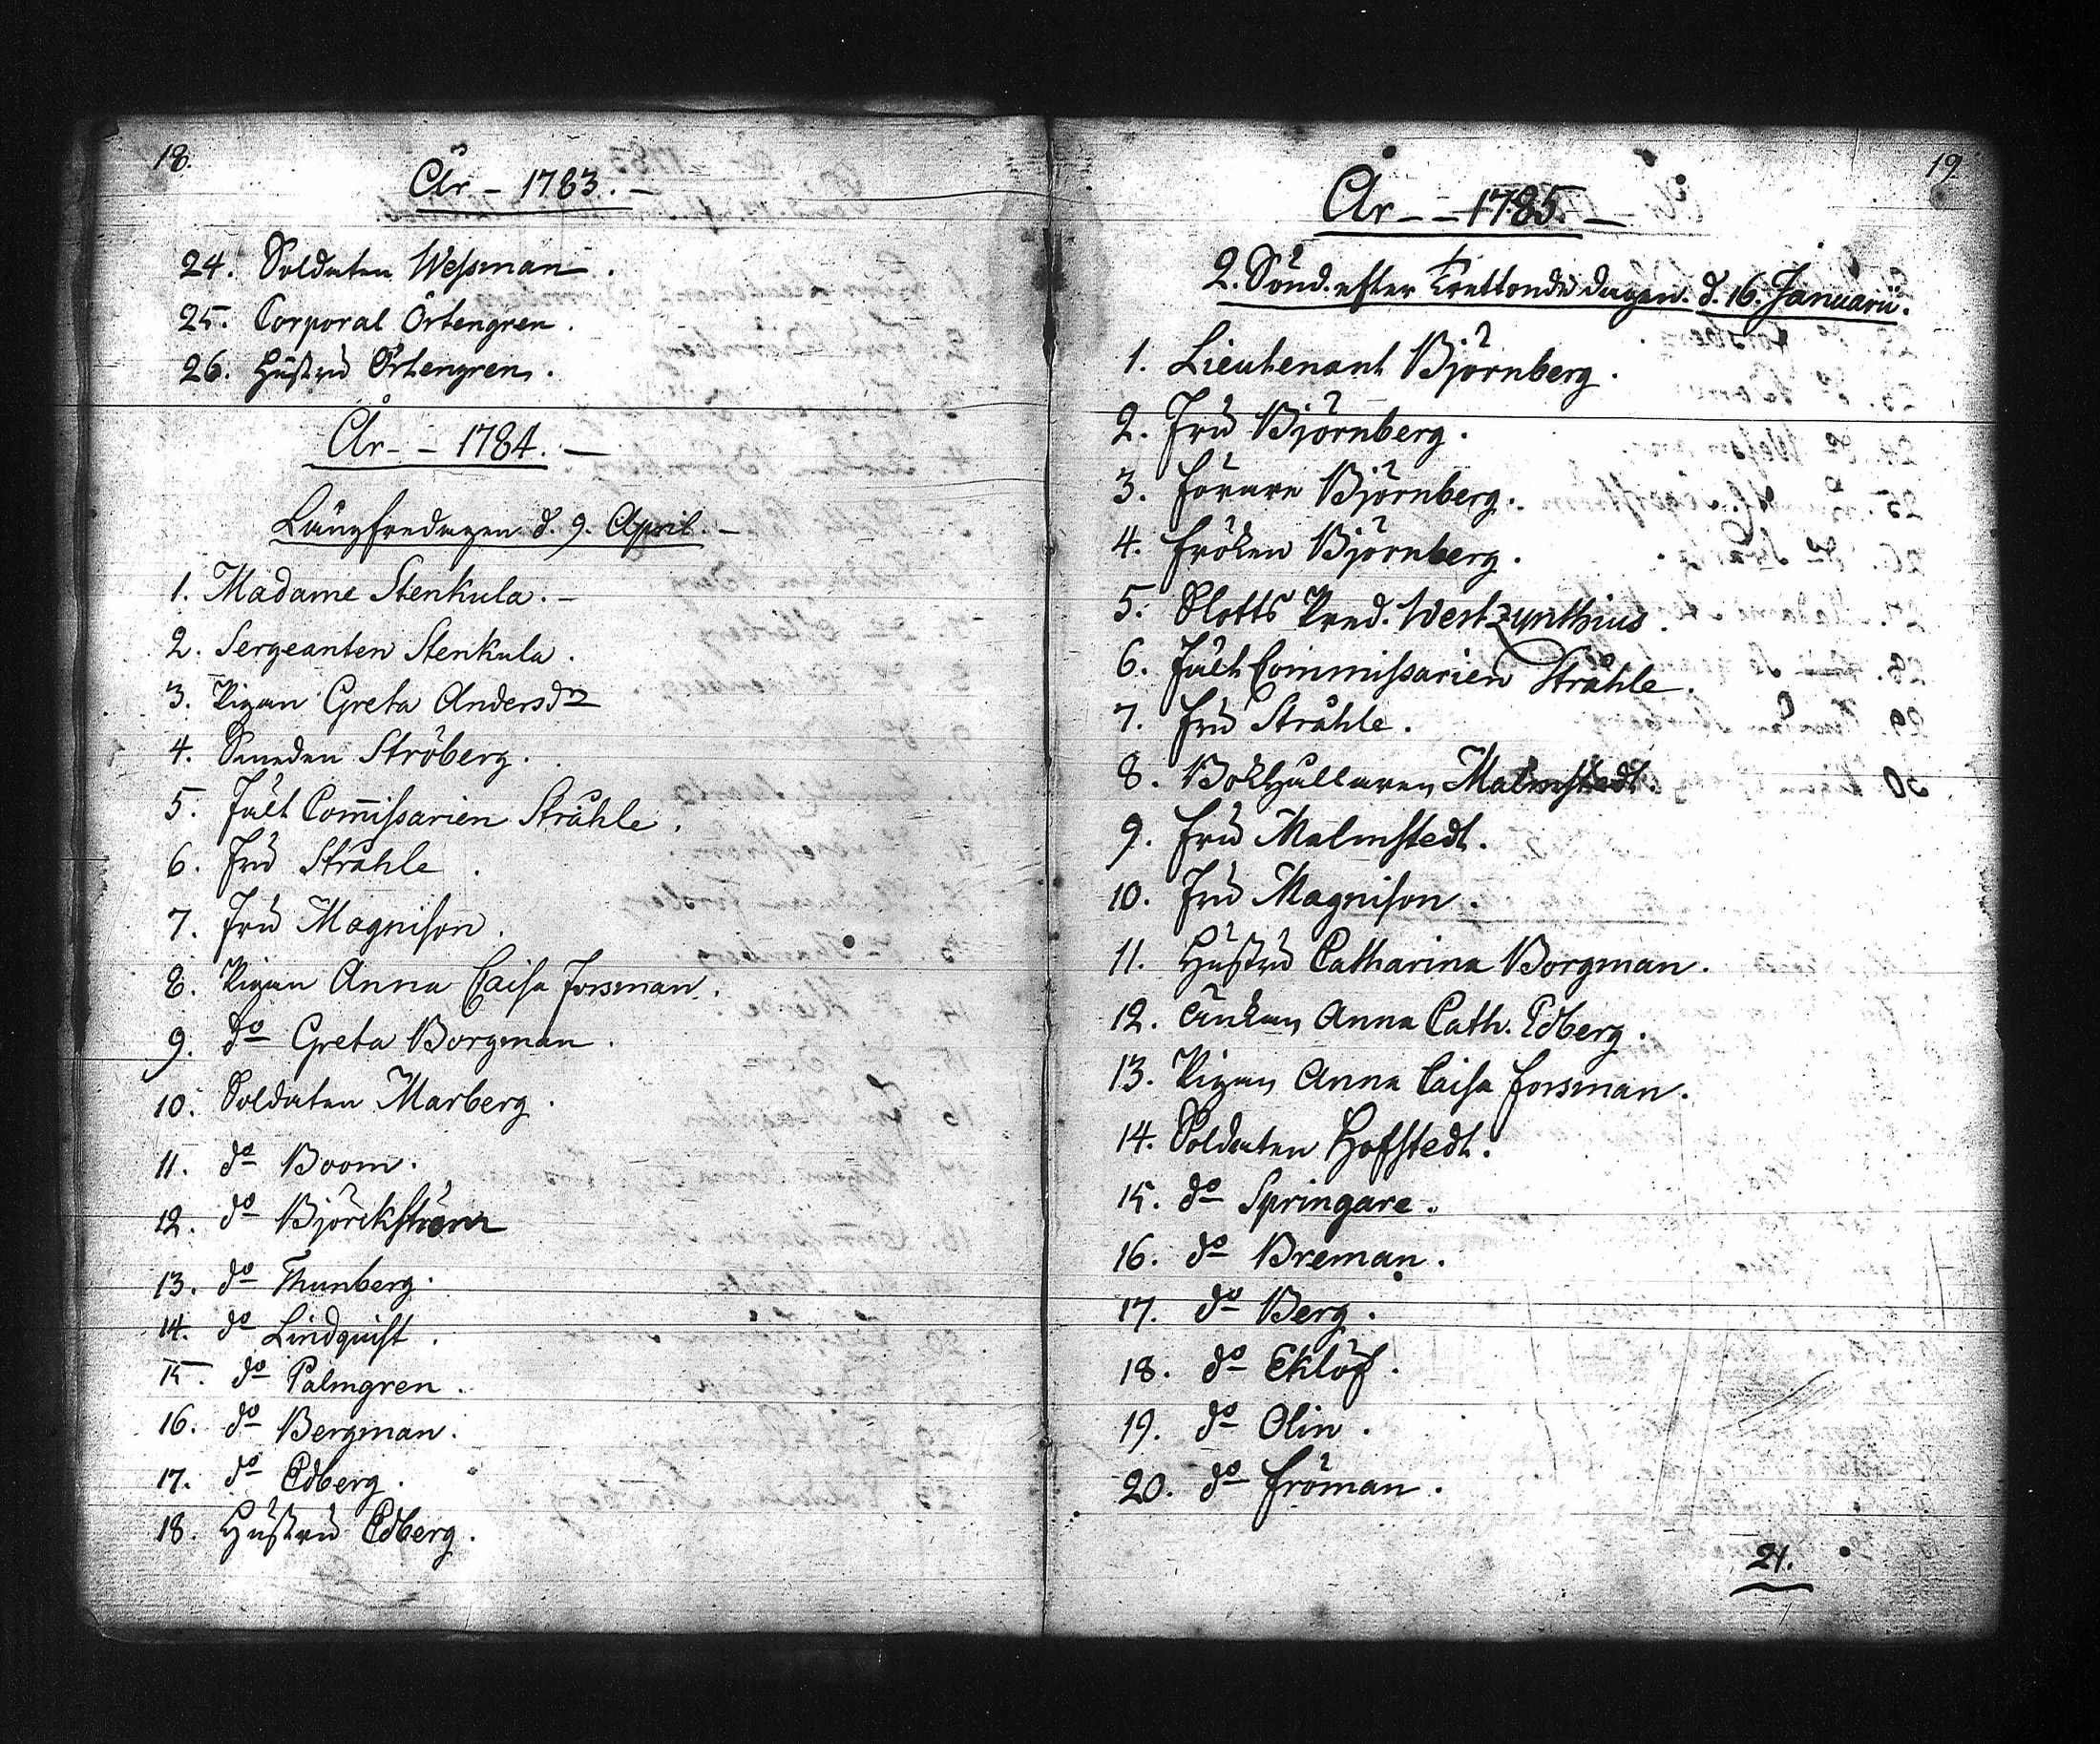 18.
År - 1783. -
24. Soldaten Wessman.
25. Corporal Örtengren.
26. Hustru Örtengren.
År - - 1784. -
Långfredagen d. 9. April. -
1. Madame Stenkula. -
2. Sergeanten Stenkula.
3. Pigan Greta Andersdr
4. Smeden Ströberg.
5. Fält Com̄issarien Stråhle.
6. Fru Stråhle.
7. Fru Magnison.
8. Pigan Anna Caisa Forsman.
9. do Greta Borgman.
10. Soldaten Marberg.
11. do Boom.
12. do Björckström
13. do Thunberg.
14. do Lindquist.
15. do Palmgren.
16. do Bergman.
17. do Edberg.
18. Hustru Edberg.
19
År - - 1785. -
2. Sönd. efter Trettonde dagen. d. 16. Januarii.
1. Lieutenant Björnberg.
2. Fru Björnberg.
3. Förare Björnberg.
4. Fröken Björnberg.
5. Slotts Pred. Westzynthius.
6. Fält Commissarien Stråhle.
7. Fru Stråhle.
8. Bokhållaren Malmstedt.
9. Fru Malmstedt.
10. Fru Magnison.
11. Hustru Catharina Borgman.
12. Änkan Anna Cath. Edberg.
13. Pigan Anna Caisa Forsman.
14. Soldaten Hofstedt.
15. do Springare.
16. do Breman.
17. do Berg.
18. do Eklöf.
19. do Olin.
20. do Fröman.
21.